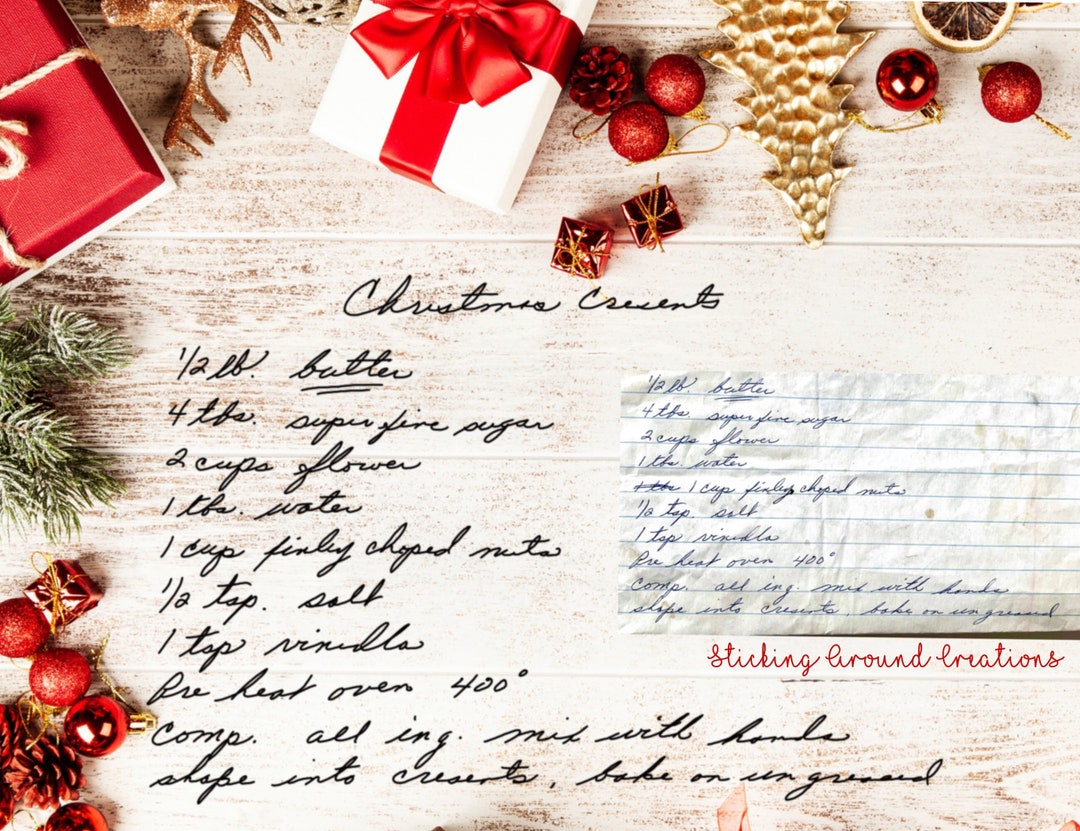 Christmas Cresents
1/2 lb. butter
4 tbs. super fine sugar
2 cups flower
1 tbs. water
1 cup finley choped nuts
1/2 tsp. salt
1 tsp vinella
Pre heat oven 400°
Comp. all ing. mix with hands
shape into cresents, bake on un greased
1/2 lb. butter
4 tbs. super fine sugar
2 cups flower
1 tbs. water
1 tbs 1 cup finley choped nuts
1/2 tsp. salt
1 tsp vinella
Pre heat oven 400°
Comp. all ing. mix with hands
shape into cresents, bake on un greased
Sticking Around Creations